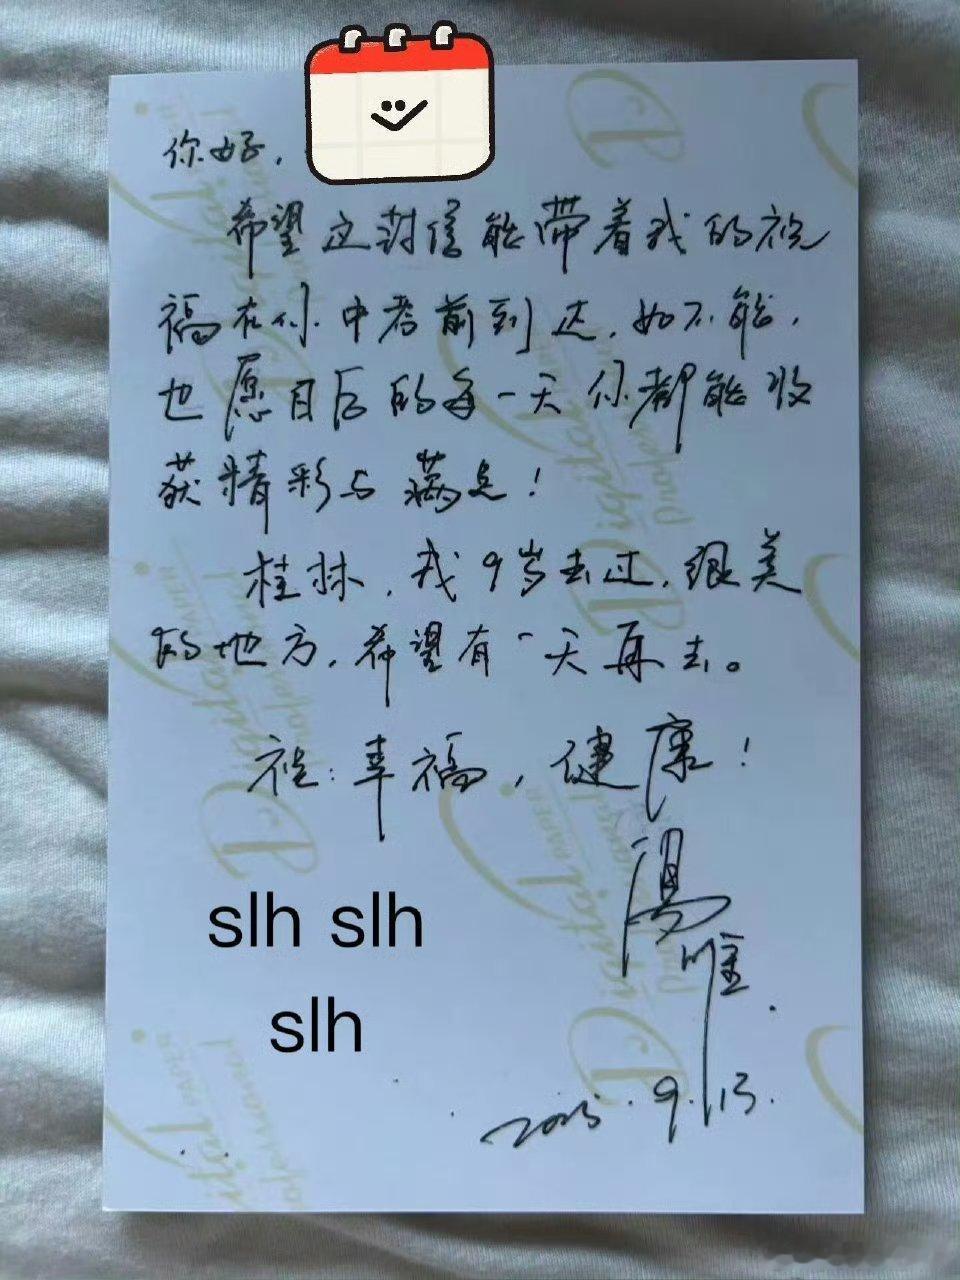 你好,
希望这封信能带着我的祝
福在你中考前到达,如不能,
也愿日后的每一天你都能收
获精彩与满足!
桂林,我9岁去过,很美
的地方,希望有一天再去。
祝:幸福,健康!
湯唯
2025.9.13.
slh slh
slh
Digital
Digital
Digital
Digital